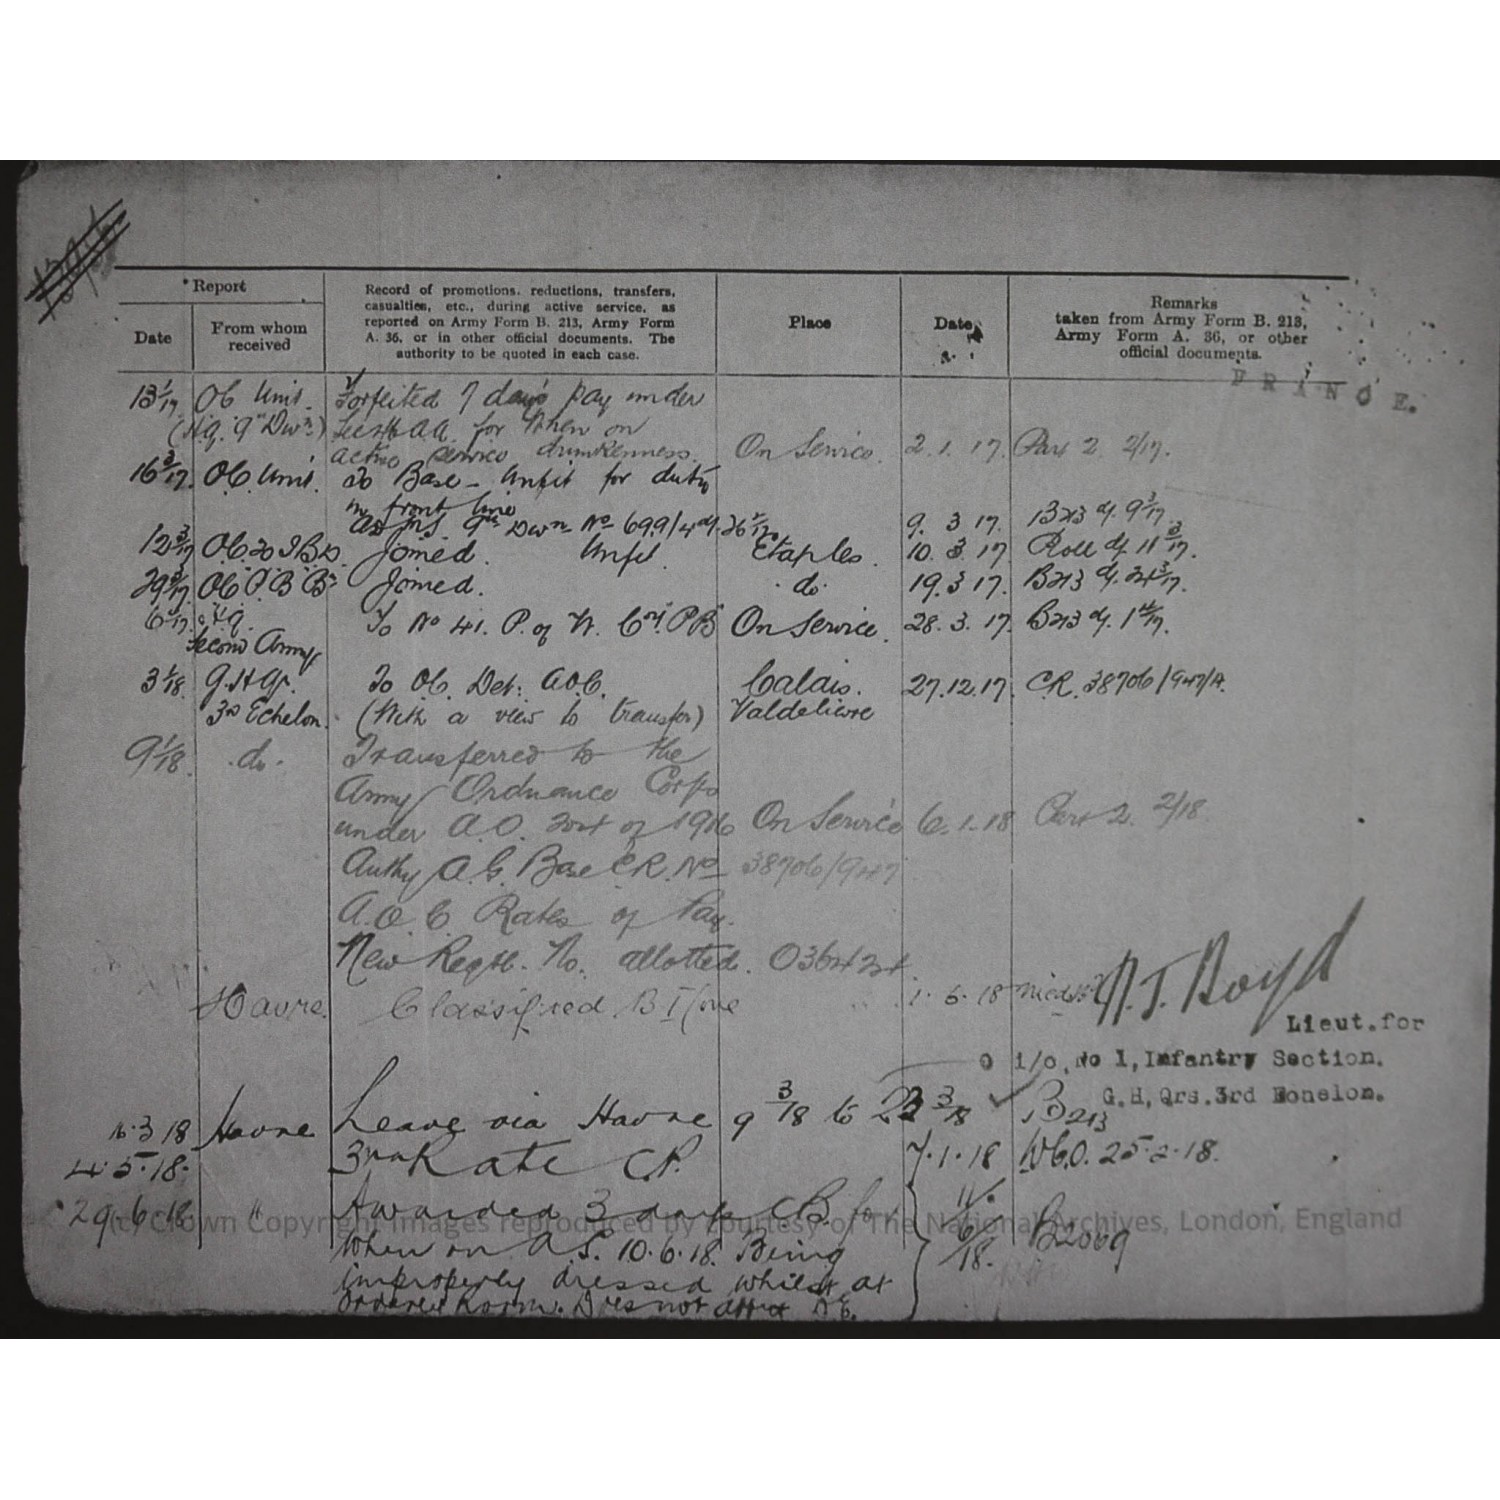 Report
Date
From whom received
Record of promotions, reductions, transfers,
casualties, etc., during active service, as
reported on Army Form B. 213, Army Form
A. 36, or in other official documents. The
authority to be quoted in each case.
Place
Date
Remarks
taken from Army Form B. 213,
Army Form A. 36, or other
official documents.
FRANCE.
13/1/17 OC Unit. Forfeited 7 days pay under
(H.Q. 9th Divn) AA. for When on
active service drunkenness. On Service. 2.1.17. Part 2 2/17.
16/3/17. O.C. Unit. To Base - Unfit for duty
in front line
9th Divn No 699/4 9. 3 17. B213 d/. 9/3/17
12/3/17 O.C. 20 I.B.D. Joined. Unfit. Etaples. 10. 3. 17 Roll d/. 11/3/17.
29/3/17 OC P.B B Joined. do 19.3 17. B213 d/. 24/3/17.
6/4/17 H.Q. To No 41. P. of W. Coy. P.B On Service. 28. 3. 17. B213 d/. 1/4/17.
Second Army
3/1/18 G.H.Qr. To OC. Det: A.O.C. Calais. 27.12.17. C.R. 38706/947/A.
3rd Echelon. (With a view to transfer) Valdelievre
9/1/18. do. Transferred to the
Army Ordnance Corps
under A.O. 204 of 1916 On Service 6.1.18 Part 2. 2/18.
Authy A.G. Base C.R. No 38706/947
A.O.C. Rates of Pay.
New Regtl. No. allotted. 036424.
Havre. Classified B I 1.6.18
N.J. Boyd
Lieut. for
O i/c, No 1, Infantry Section.
G.H, Qrs. 3rd Echelon.
16.3 18 Havre Leave via Havre 9 3/18 to 23 3/18 B213
4.5.18. 3rd Rate C.P. 7.1.18 25.2.18.
29.6.18 " Awarded 3 days CB. for 11/6/18. B2069
When on A.S. 10.6.18. Being
improperly dressed whilst at
Orderly Room. Does not affect
(c) Crown Copyright Images reproduced by courtesy of The National Archives, London, England